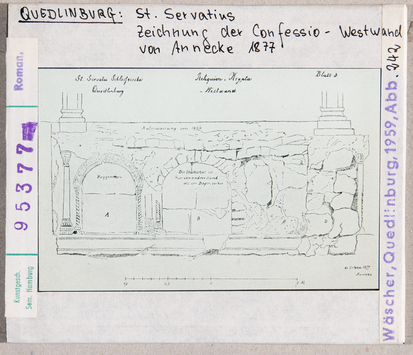 QUEDLINBURG: St. Servatius
Zeichnung der Confessio - Westwand
von Annecke 1877
Roman.
95377
Kunstgesch.
Sem. Hamburg
St Servatii Schlosskirche
Quedlinburg
Reliquien-Krypta
-Westwand
Blatt 3
Untermauerung von 1869
A
B
Wäscher, Quedlinburg, 1959, Abb. 242